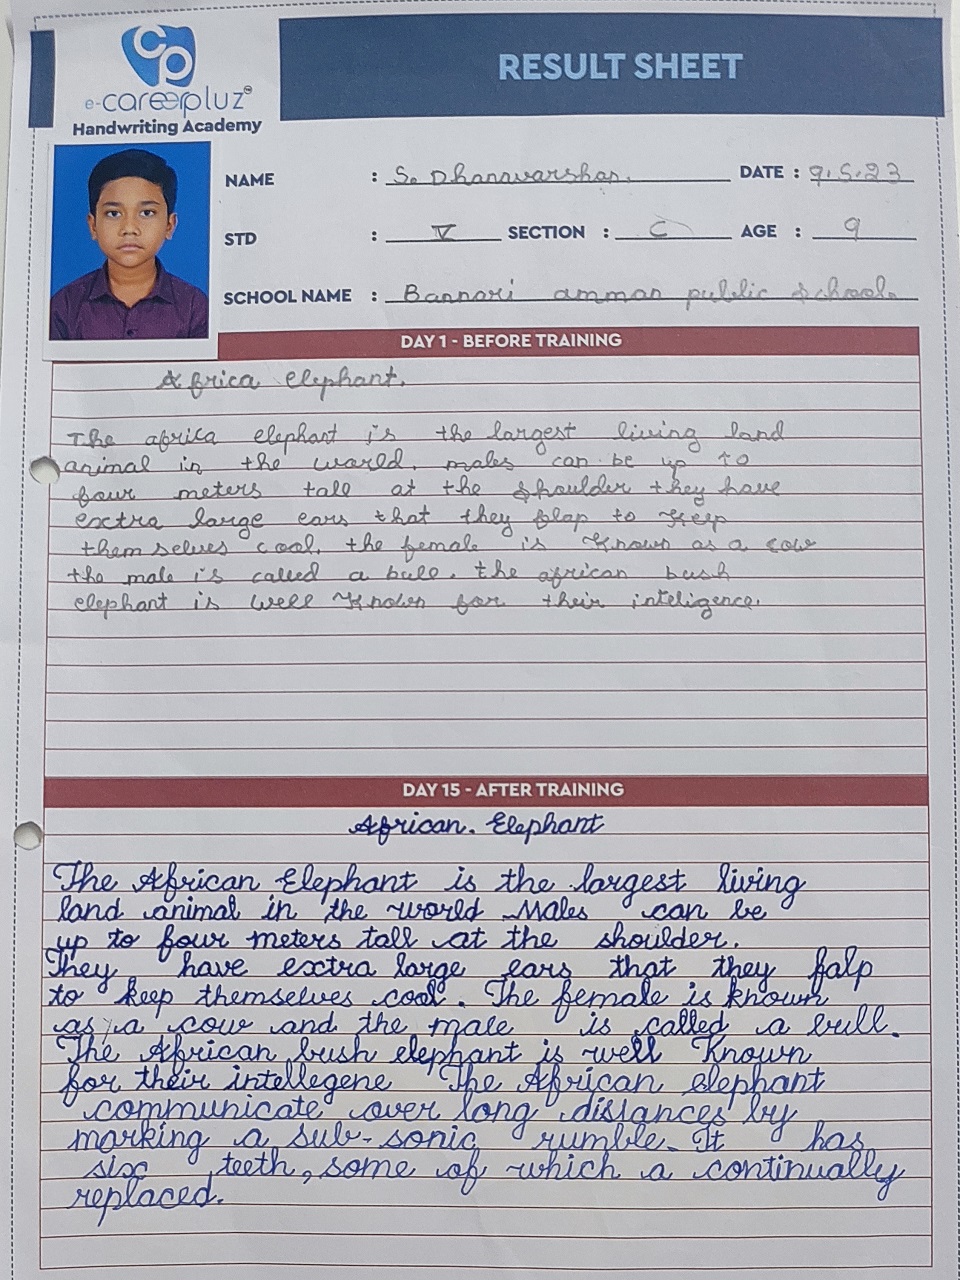 e-careerpluz
Handwriting Academy
RESULT SHEET
NAME : S. Dhanavarshan. DATE : 9.5.23
STD : V SECTION : C AGE : 9
SCHOOL NAME : Bannari amman public school.
DAY 1 - BEFORE TRAINING
Africa elephant.
The africa elephant is the largest living land
animal in the world. males can be up to
four meters tall at the shoulder they have
extra large ears that they flap to keep
them selves cool. the female is known as a cow
the male is called a bull. the african bush
elephant is well known for their inteligence.
DAY 15 - AFTER TRAINING
African. Elephant
The African Elephant is the largest living
land animal in the world Males can be
up to four meters tall at the shoulder.
They have extra large ears that they falp
to keep themselves cool. The female is known
as a cow and the male is called a bull.
The African bush elephant is well known
for their intellegene The African elephant
communicate over long distances by
marking a sub-sonic rumble. It has
six teeth, some of which a continually
replaced.